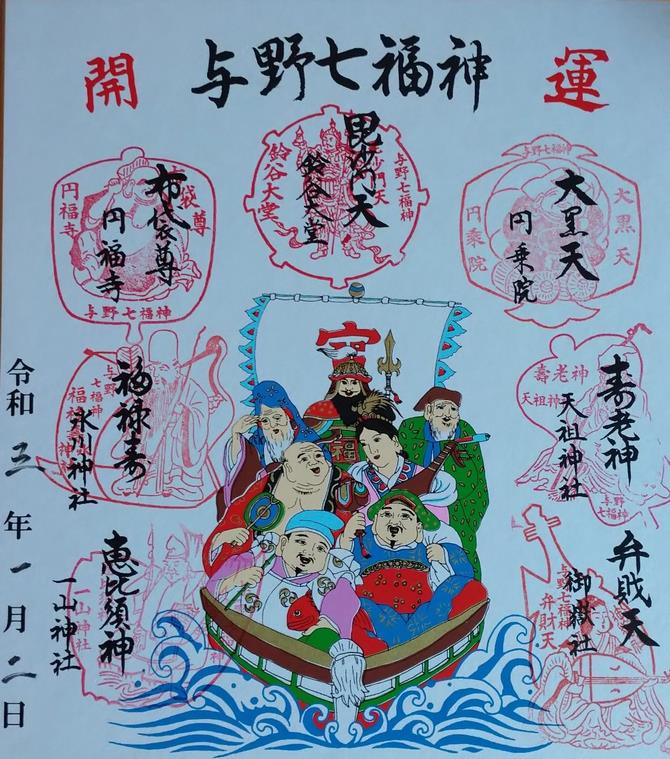 開 与野七福神 運
毘沙門天
鈴谷大堂
鈴谷大堂
与野七福神
布袋尊
円福寺
円福寺
与野七福神
大黒天
円乗院
与野七福神
大黒天
円乗院
福禄寿
氷川神社
与野七福神
寿老神
天祖神社
壽老神
天祖神
与野七福神
恵比須神
一山神社
一山神社
弁財天
御嶽社
与野七福神
弁財天
宝
福
令和三年一月二日